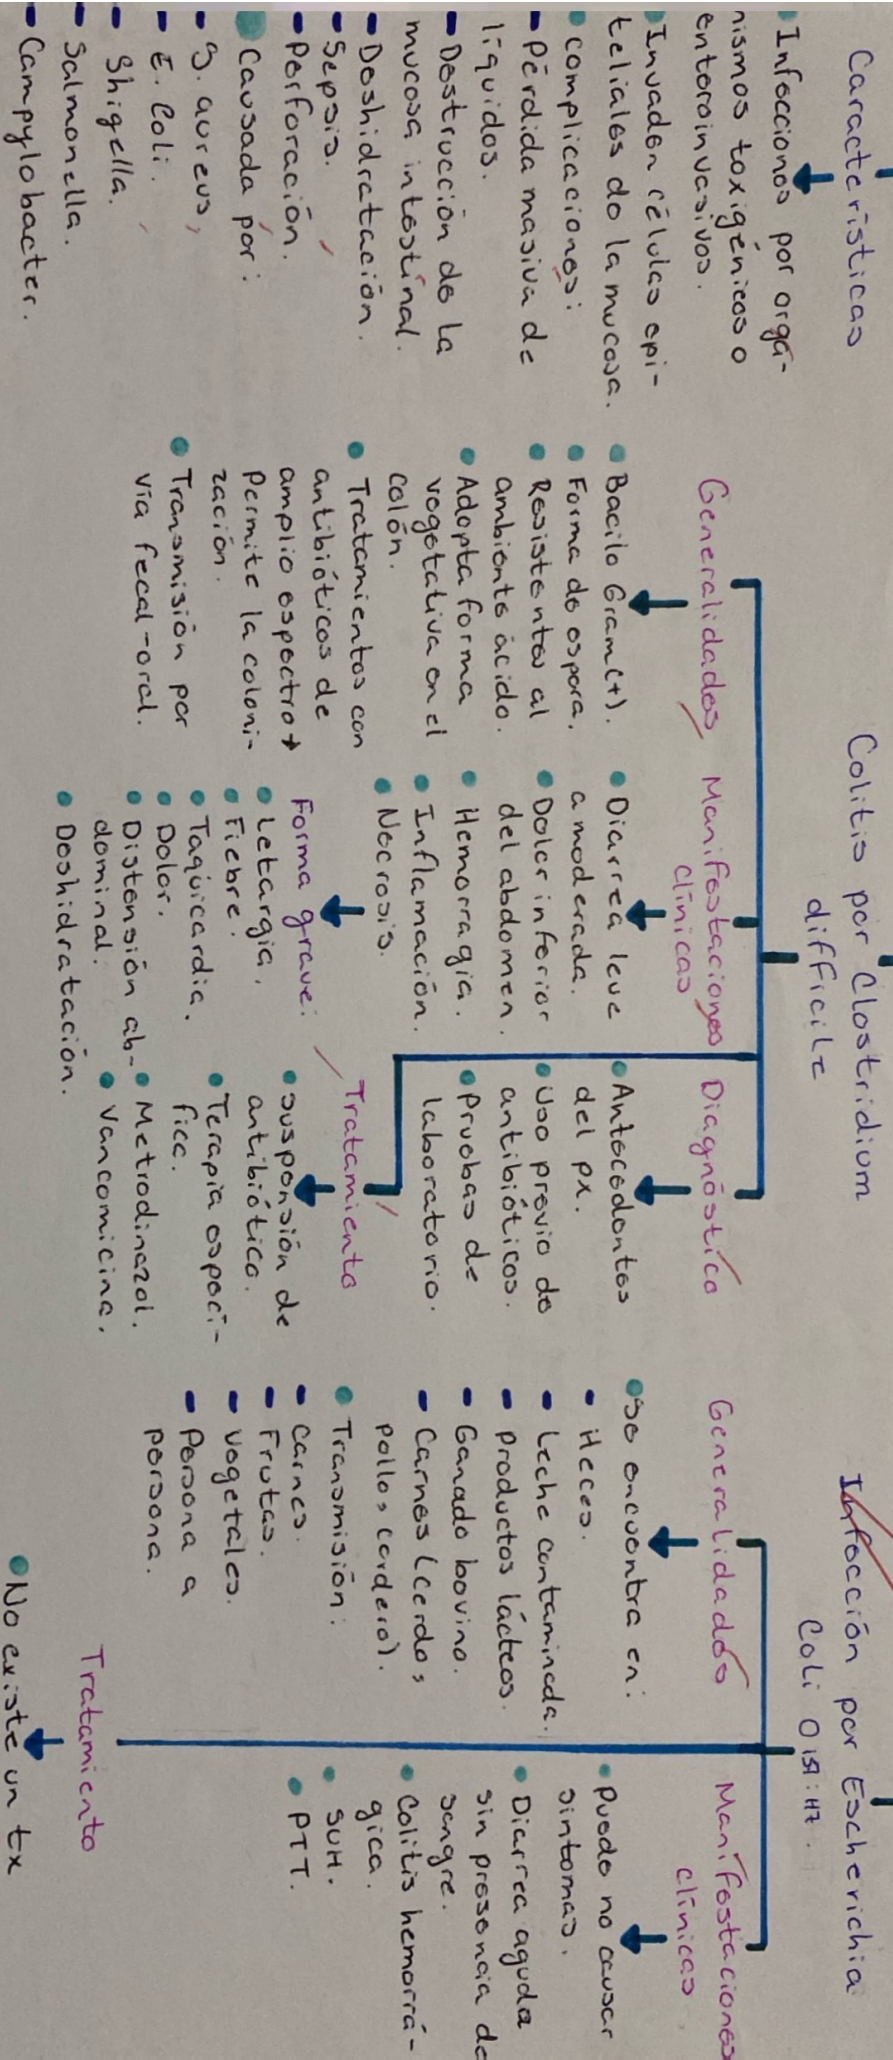 Características
Infecciones por orga-
nismos toxigénicos o
enteroinvasivos.
Invaden células epi-
teliales de la mucosa.
Complicaciones:
- Pérdida masiva de
líquidos.
- Destrucción de la
mucosa intestinal.
- Deshidratación.
- Sepsis.
- Perforación.
Causada por:
- S. aureus,
- E. Coli.
- Shigella.
- Salmonella.
- Campylobacter.
Colitis por Clostridium
difficile
Generalidades
Bacilo Gram(+).
Forma de espora.
Resistentes al
ambiente ácido.
Adopta forma
vegetativa en el
colón.
Tratamientos con
antibióticos de
amplio espectro →
Permite la coloni-
zación.
Transmisión por
vía fecal-oral.
Manifestaciones
clínicas
Diarrea leve
a moderada.
Dolor inferior
del abdomen.
Hemorragia.
Inflamación.
Necrosis.
Forma grave:
Letargia.
Fiebre.
Taquicardia.
Dolor.
Distensión ab-
dominal.
Deshidratación.
Diagnóstico
Antecedentes
del px.
Uso previo de
antibióticos.
Pruebas de
laboratorio.
Tratamiento
Suspensión de
antibiótico.
Terapia especí-
fica.
Metrodinazol.
Vancomicina.
Infección por Escherichia
Coli O157:H7.
Generalidades
Se encuentra en:
- Heces.
- Leche contaminada.
- Productos lácteos.
- Ganado bovino.
- Carnes (cerdo,
pollo, cordero).
Transmisión:
- Carnes.
- Frutas.
- Vegetales.
- Persona a
persona.
Manifestaciones
clínicas
Puede no causar
síntomas.
Diarrea aguda
sin presencia de
sangre.
Colitis hemorrá-
gica.
SUH.
PTT.
Tratamiento
No existe un tx